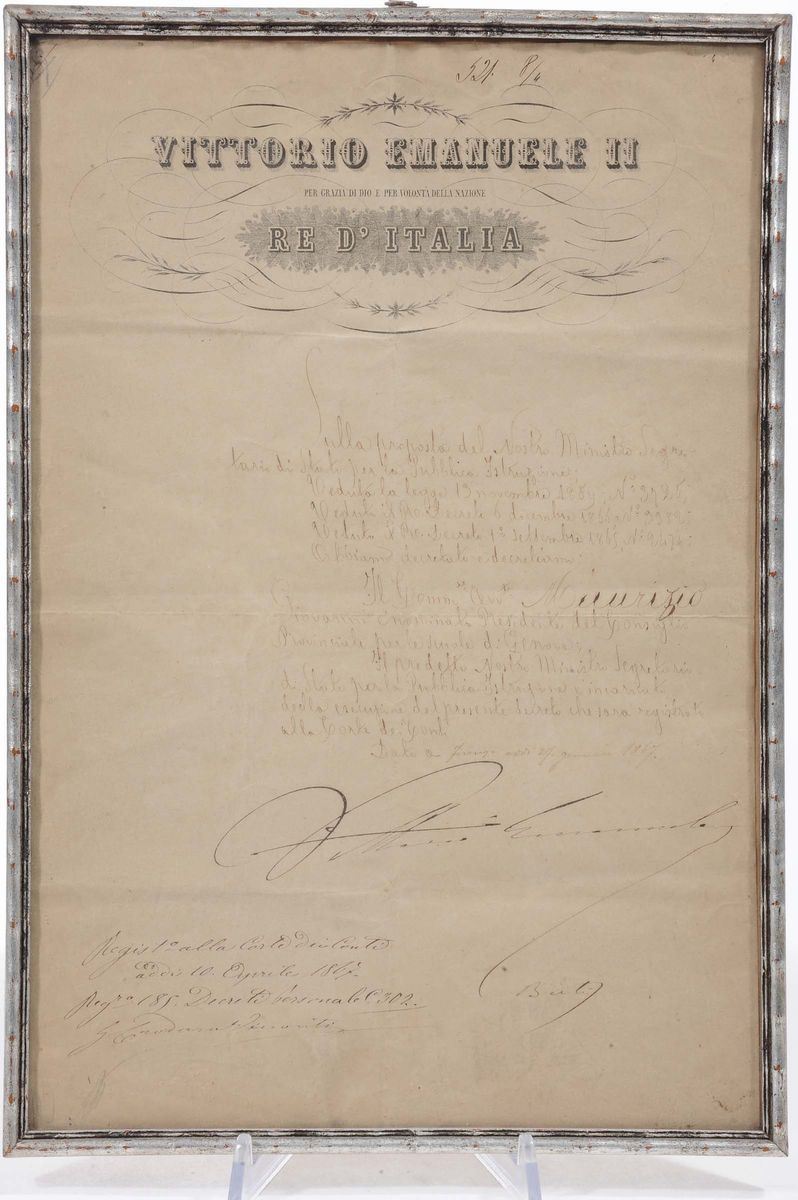 521 8/4
VITTORIO EMANUELE II
PER GRAZIA DI DIO E PER VOLONTA DELLA NAZIONE
RE D' ITALIA
Sulla proposta del Nostro Ministro Segre-
tario di Stato per la Pubblica Istruzione;
Veduta la legge 13 novembre 1859, No 3725;
Veduto il Ro Decreto 6 dicembre 1866, No 3382;
Veduto il Ro Decreto 1o settembre 1865, No 2474;
Abbiamo decretato e decretiamo:
Il Comm.re Avv.to Maurizio
Giovanni è nominato Presidente del Consiglio
Provinciale per le scuole di Genova.
Il predetto Nostro Ministro Segretario
di Stato per la Pubblica Istruzione è incaricato
della esecuzione del presente decreto che sarà registrato
alla Corte dei Conti.
Dato a Firenze addì 27 gennaio 1867.
Vittorio Emanuele
Regist.o alla Corte dei Conti
addì 10. Aprile 1867.
Reg.ro 185. Decreti personali C. 302.
Berti